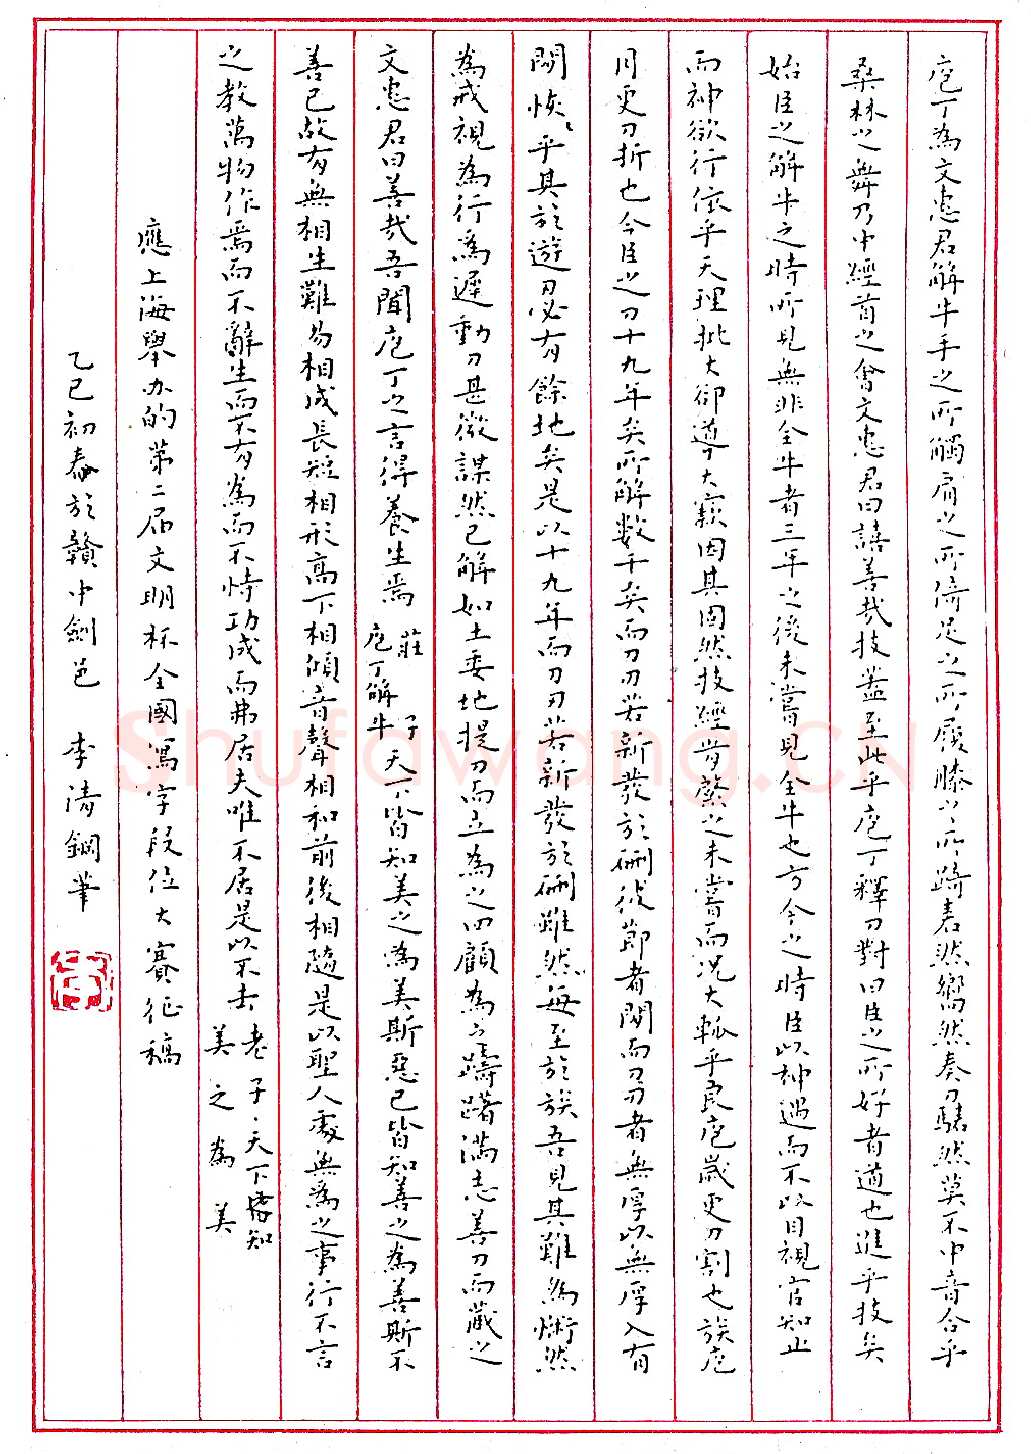 庖丁為文惠君解牛手之所觸肩之所倚足之所履膝之所踦砉然嚮然奏刀騞然莫不中音合乎
桑林之舞乃中經首之會文惠君曰譆善哉技蓋至此乎庖丁釋刀對曰臣之所好者道也進乎技矣
始臣之解牛之時所見無非全牛者三年之後未嘗見全牛也方今之時臣以神遇而不以目視官知止
而神欲行依乎天理批大卻導大窾因其固然技經肯綮之未嘗而況大軱乎良庖歲更刀割也族庖
月更刀折也今臣之刀十九年矣所解数千矣而刀刃若新發於硎彼節者閒而刀刃者無厚以無厚入有
閒恢々乎其於遊刃必有餘地矣是以十九年而刀刃若新發於硎雖然每至於族吾見其難為怵然
為戒視為行為遲動刀甚微謋然已解如土委地提刀而立為之四顧為之躊躇滿志善刀而藏之
文惠君曰善哉吾聞庖丁之言得養生焉 莊子 庖丁解牛 天下皆知美之為美斯惡已皆知善之為善斯不
善已故有無相生難易相成長短相形高下相傾音聲相和前後相隨是以聖人處無為之事行不言
之教萬物作焉而不辭生而不有為而不恃功成而弗居夫唯不居是以不去 老子·天下皆知美之為美
應上海舉办的第二届文明杯全國寫字段位大賽征稿
乙巳初春於贛中劍邑 李清鋼筆
Shufawang.cn